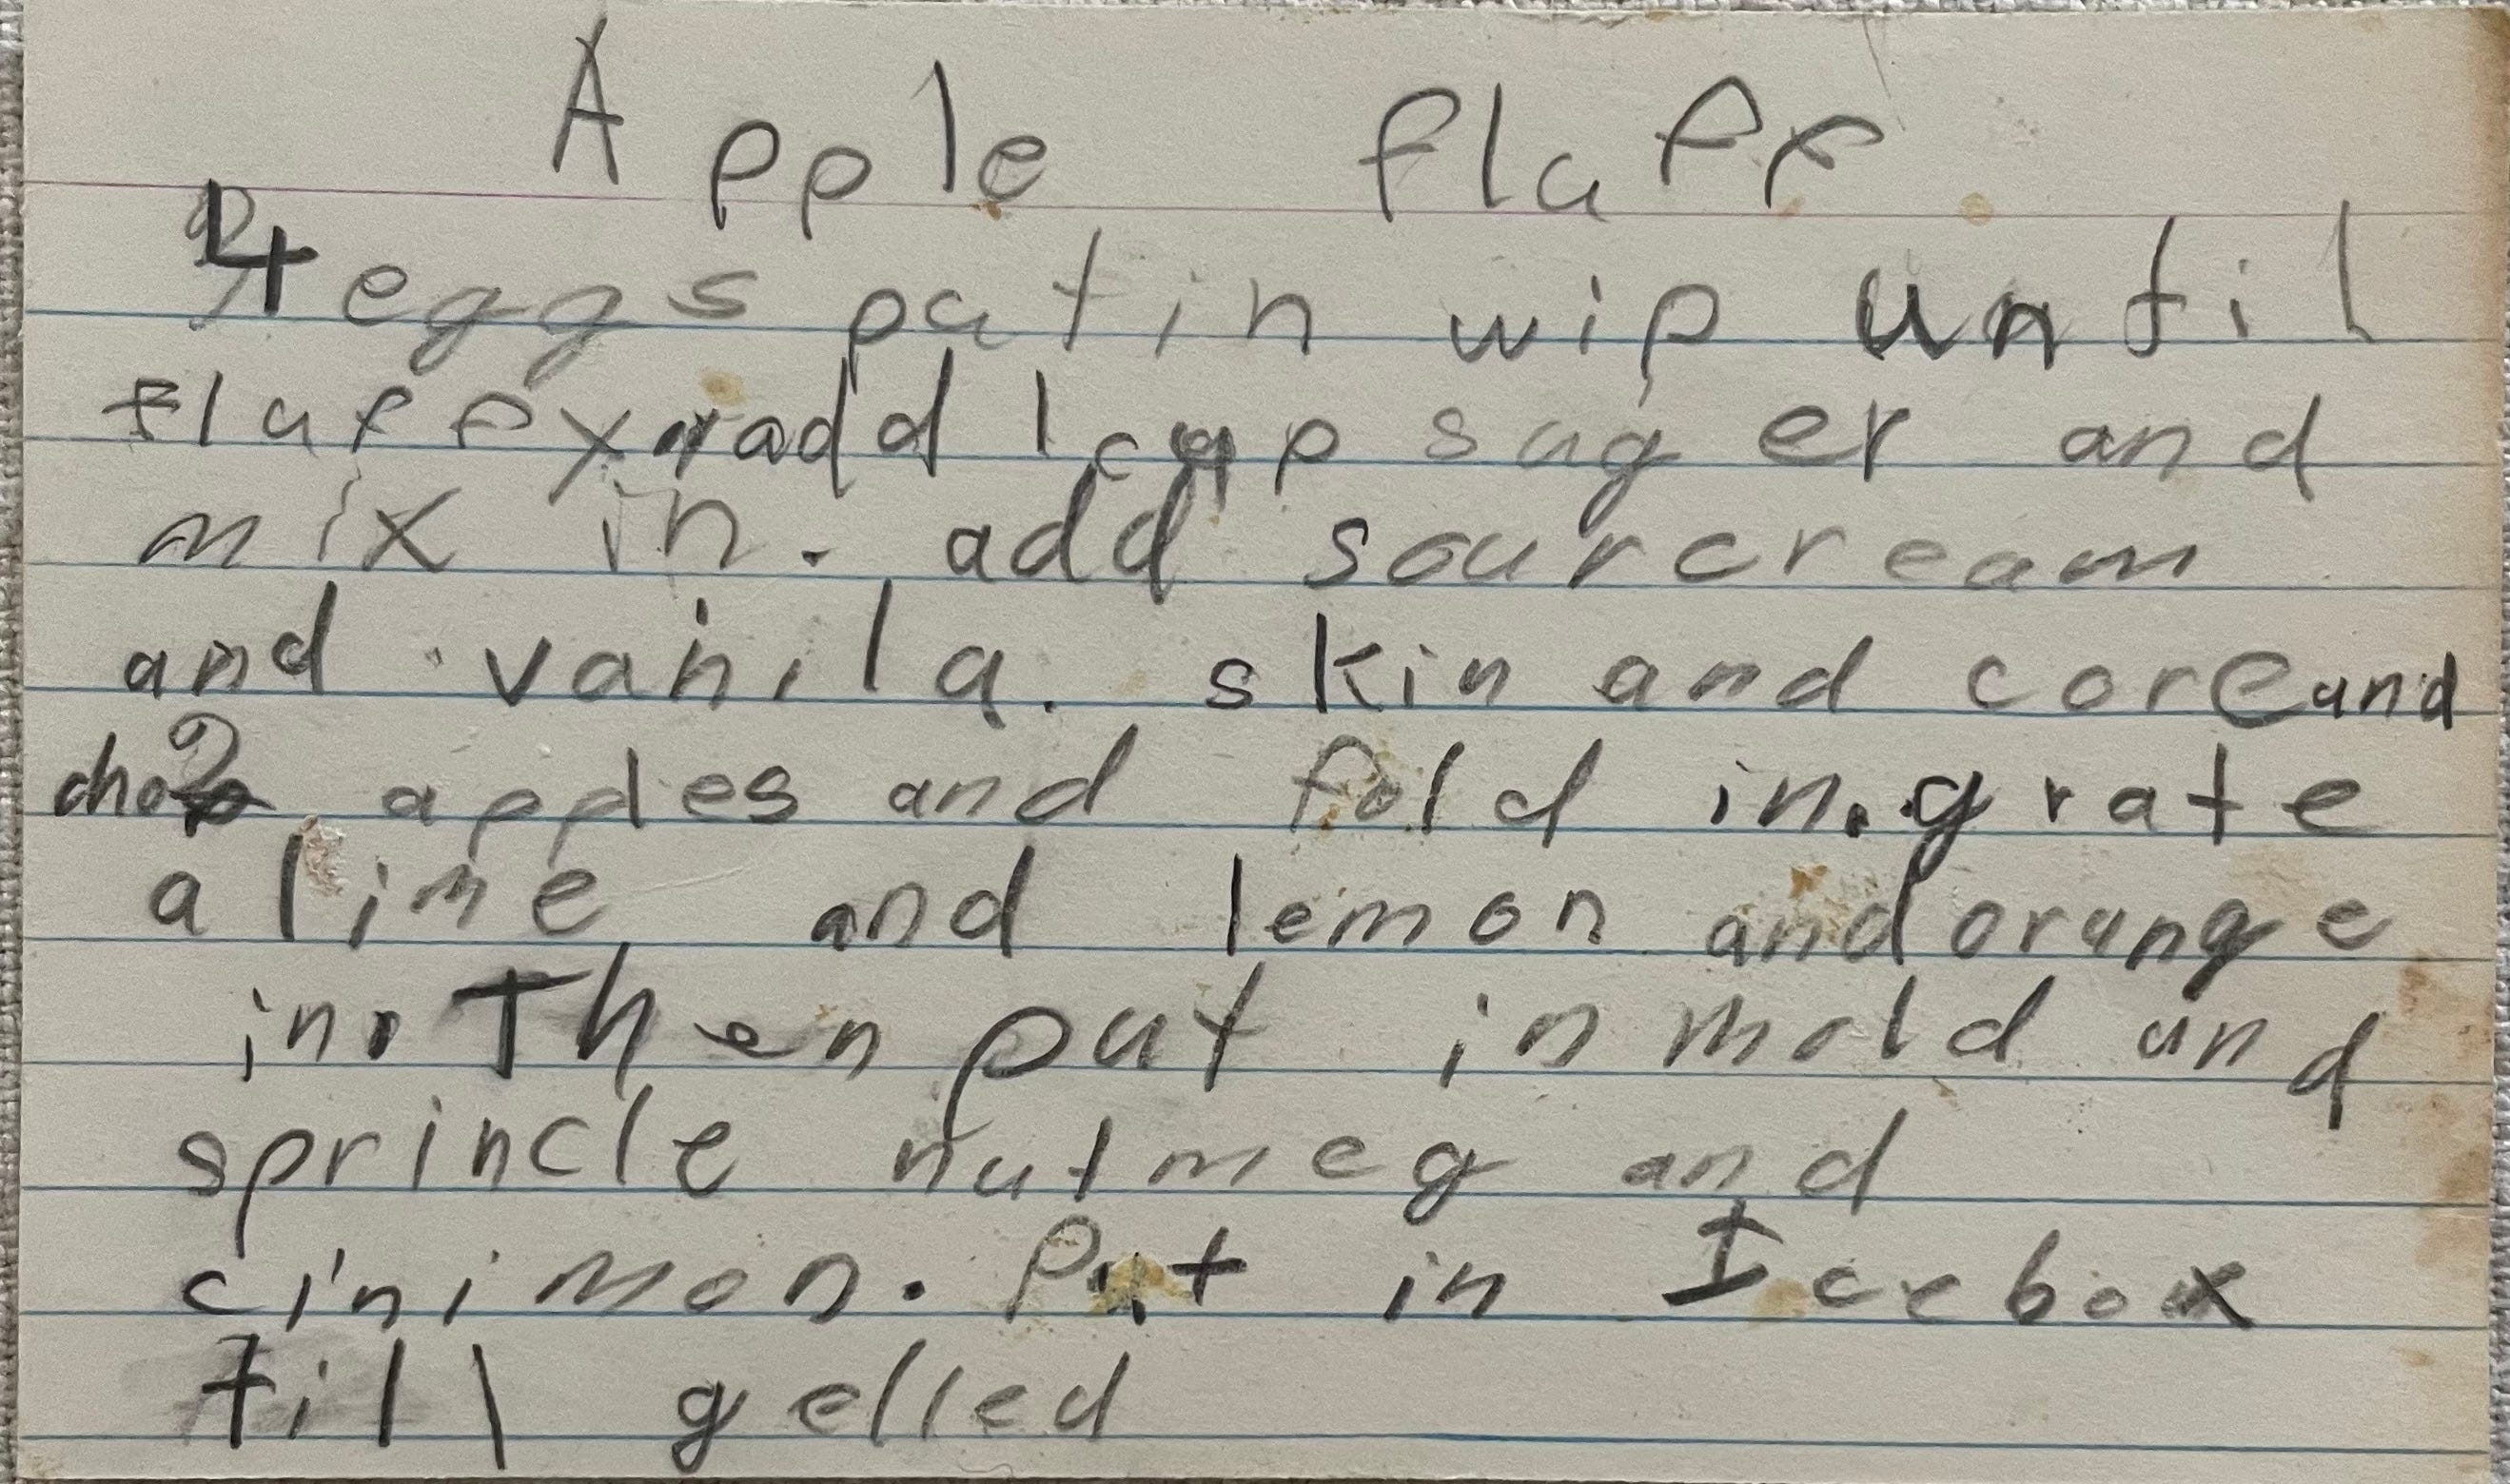 Apple fluff
4 eggs put in wip until
fluffy add 1 cup suger and
mix in. add sourcream
and vanila. skin and core and
chop 2 apples and fold in. grate
a lime and lemon and orange
in. Then put in mold and
sprincle nutmeg and
cinimon. Put in Icebox
till gelled